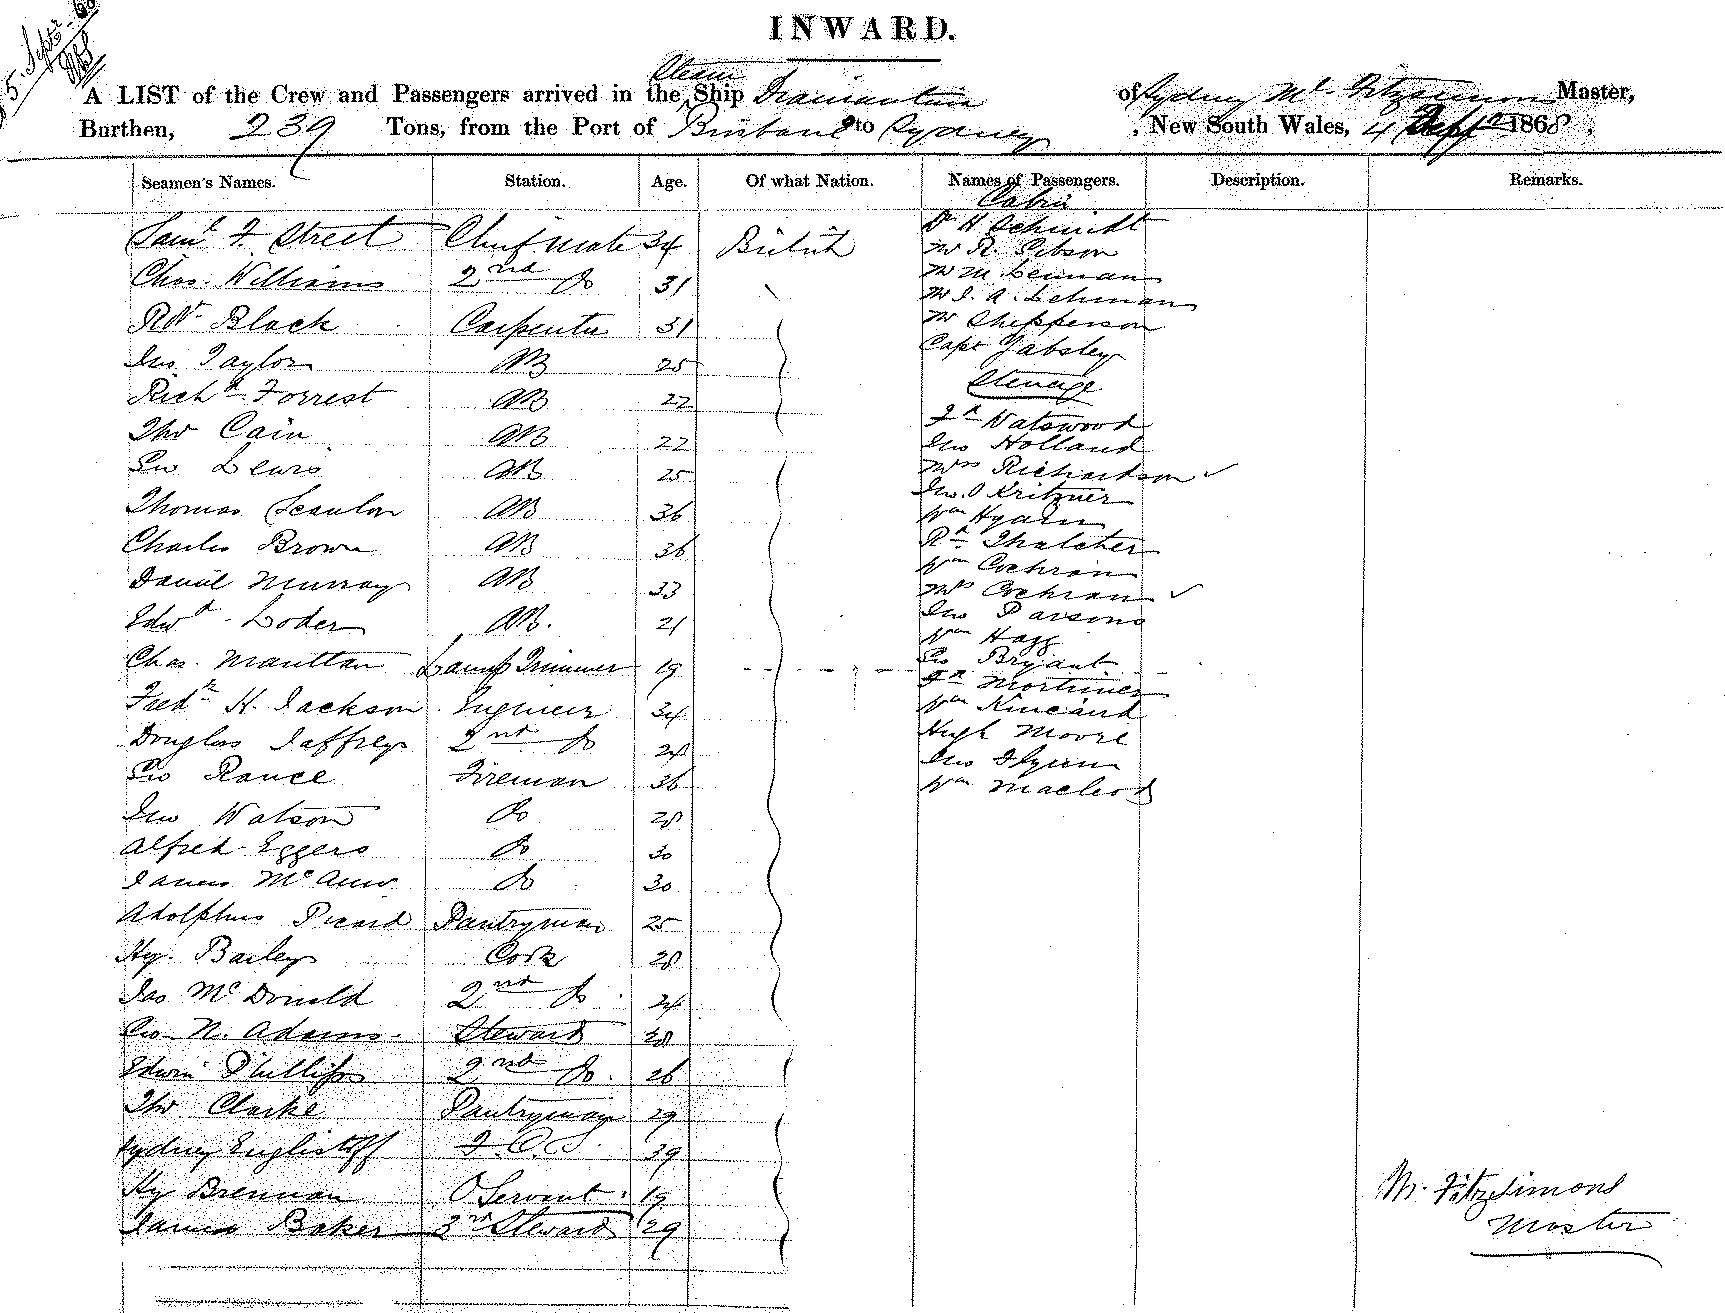 INWARD.
5. Sept. 68
Steam
A LIST of the Crew and Passengers arrived in the Ship Diamantina of Sydney M. Fitzsimons Master,
Burthen, 239 Tons, from the Port of Brisbane to Sydney, New South Wales, 4 Sept 1868.
Seamen's Names. Station. Age. Of what Nation. Names of Passengers. Description. Remarks.
Saml F. Street Chief Mate 34 British
Chas. Williams 2nd Do 31
Rt Black Carpenter 31
Jno Taylor AB 25
Richd Forrest AB 22
Thos Cain AB 22
Geo Lewis AB 25
Thomas Scanlon AB 36
Charles Brown AB 36
Daniel Murray AB 33
Edwd Loder AB. 21
Chas. Maultan Lamp Trimmer 19
Fredk H. Jackson Engineer 34
Douglas Jaffrey 2nd Do 28
Geo Rance Fireman 36
Jno Watson Do 28
Alfred Eggers Do 30
James Mc Do 30
Adolphus Picard Pantryman 25
Hy. Bailey Cook 28
Jas McDonald 2nd Do. 24
Geo N. Adams Steward 28
Edwin Phillips 2nd Do. 26
Thos Clarke Pantryman 29
Sydney 39
Hy Brennan O Servant. 19
James Baker 3rd Steward 29
Cabin
Dr H Schmidt
Mr R. Gibson
Mr M. Lenman
Mr J. A. Lehman
Mr Shepperson
Capt Yabsley
Steerage
Fk Watswood
Jno Holland
Mrs Richardson ✓
Jno. O Kritzner
Wm Hyam
Rd Thatcher
Wm Cochran
Mrs Cochran ✓
Jno Parsons
Wm Hagg
Geo Bryant
Fk Mortimer
Wm Kincaird
Hugh Moore
Jno Flynn
Wm Macleod
M. Fitzsimons
Master